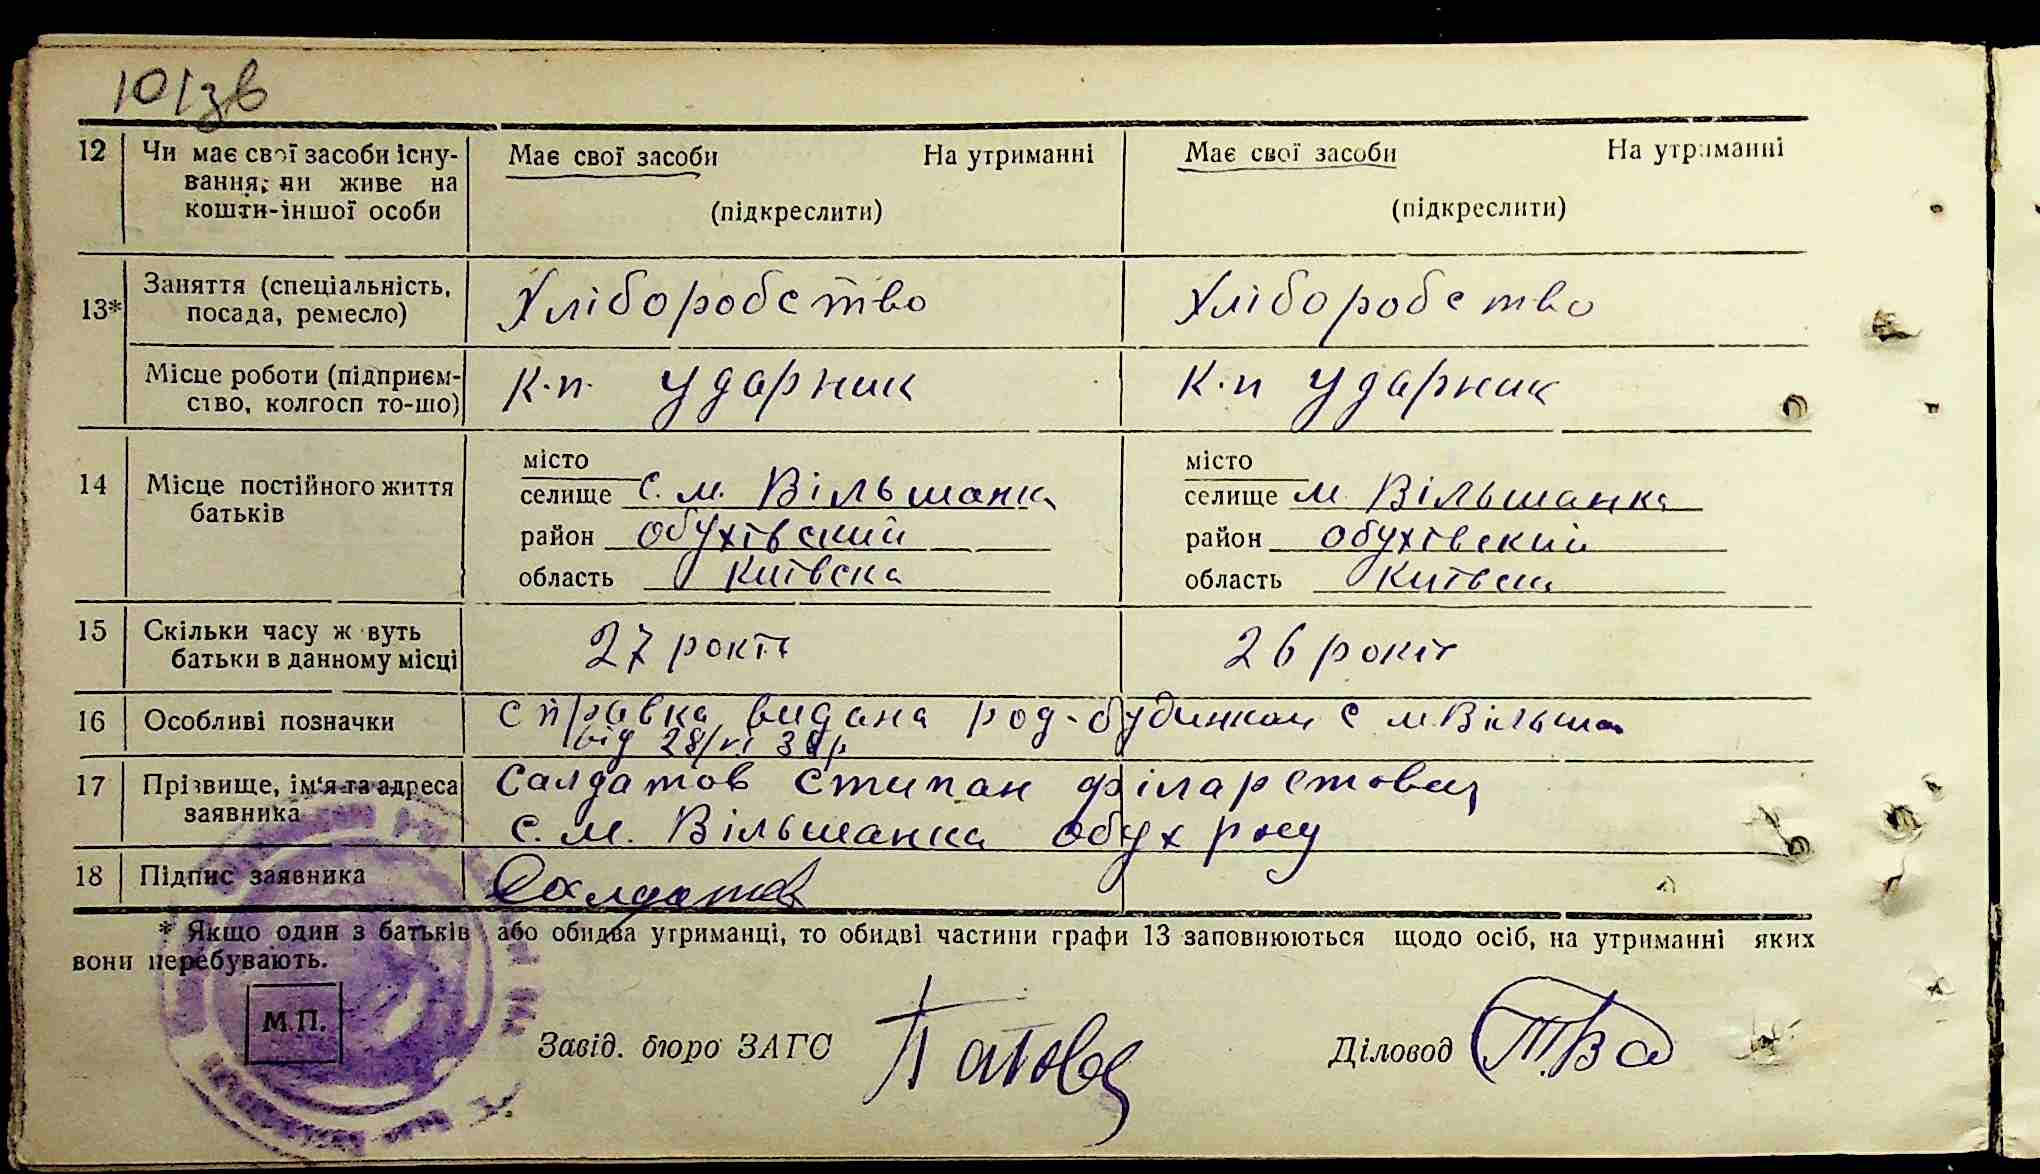 101зв
12 Чи має свої засоби існу- Має свої засоби На утриманні Має свої засоби На утриманні
вання, чи живе на
кошти-іншої особи (підкреслити) (підкреслити)
13* Заняття (спеціальність, посада, ремесло) Хліборобство Хліборобство
Місце роботи (підприєм- К.п. Ударник К.п Ударник
ство, колгосп то-що)
місто місто
14 Місце постійного життя селище с. м. Вільшанка селище м. Вільшанка
батьків район Обухівский район Обухівский
область Київска область Київска
15 Скільки часу ж вуть 27 років 26 років
батьки в данному місці
16 Особливі позначки Справка видана род-будинком с м. Вільша
від 28/VI
17 Прізвище, ім'я та адреса Салдатов Стипан Філаретович
заявника с. м. Вільшанка Обух р-ну
18 Підпис заявника Салдатов
* Якщо один з батьків або обидва утриманці, то обидві частини графи 13 заповнюються щодо осіб, на утриманні яких
вони перебувають.
М.П. Завід. бюро ЗАГС Діловод